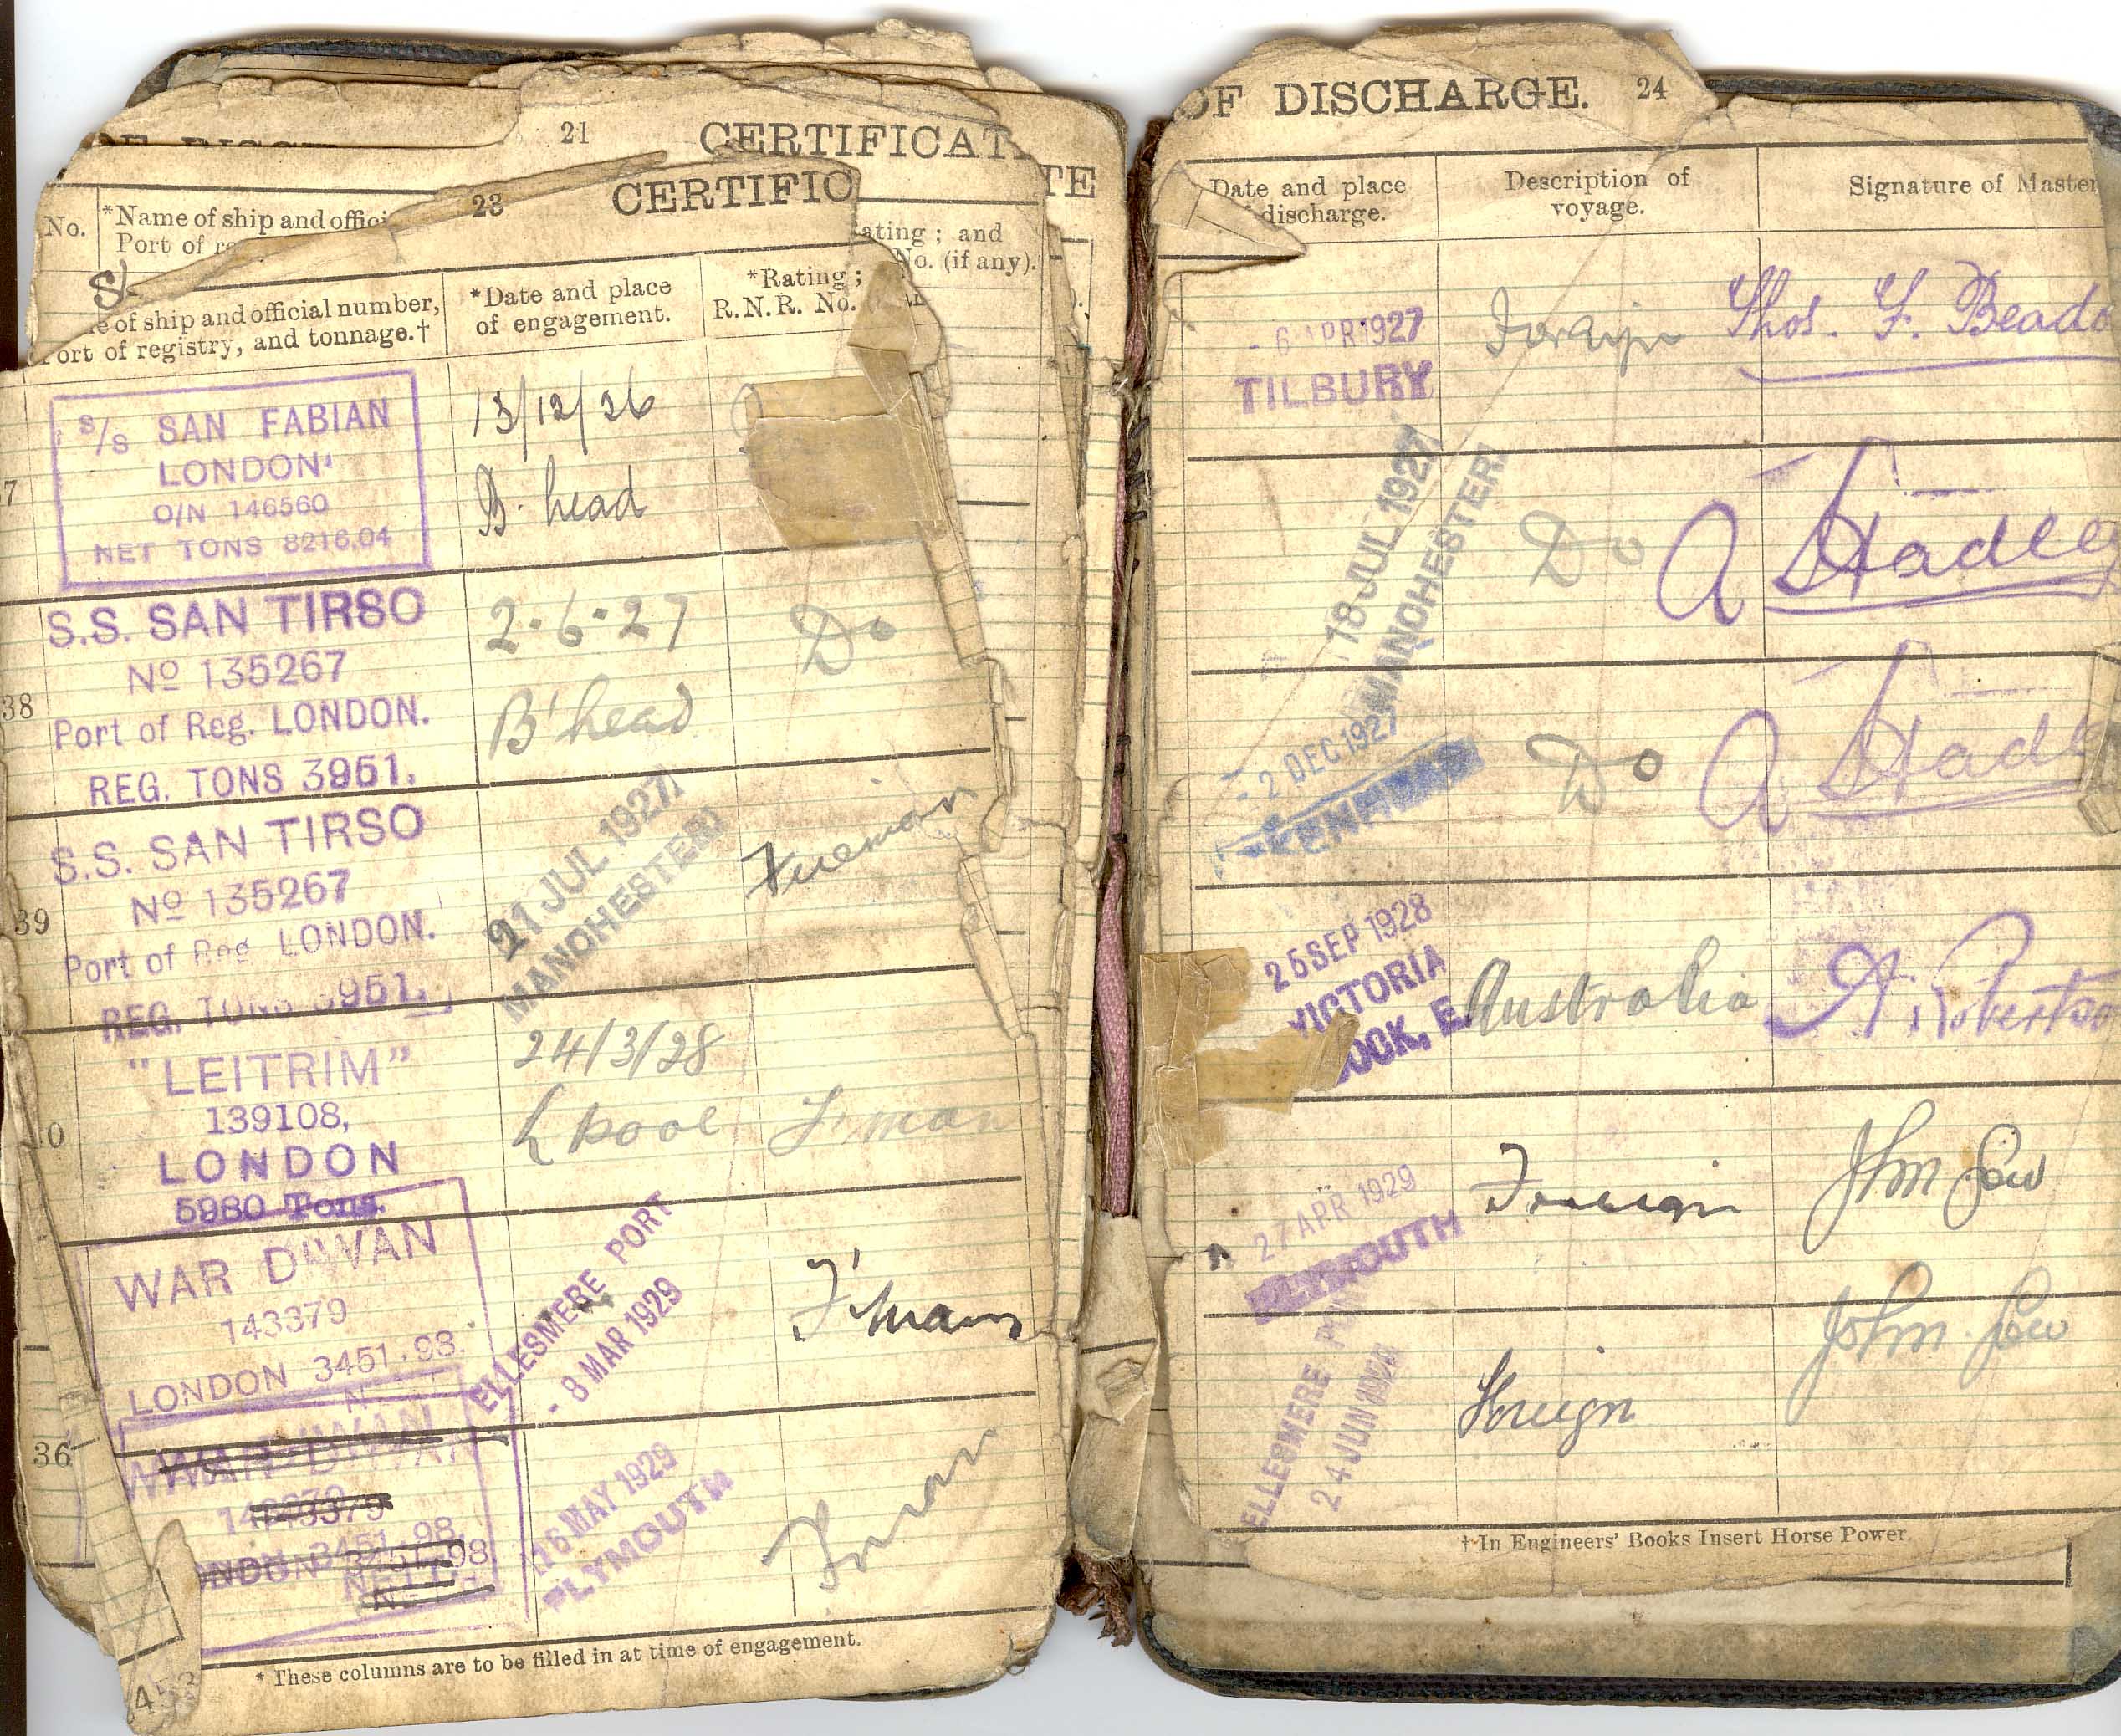 21 CERTIFICAT
TE
23 CERTIFIC
No.
*Name of ship and offici
Port of re
ating; and
No. (if any).
e of ship and official number,
ort of registry, and tonnage.†
*Date and place
of engagement.
*Rating;
R.N.R. No.
7
S/S SAN FABIAN
LONDON
O/N 146560
NET TONS 8216.04
13/12/26
B. head
38
S.S. SAN TIRSO
No 135267
Port of Reg. LONDON.
REG. TONS 3951.
2.6.27
B'head
Do
39
S.S. SAN TIRSO
No 135267
Port of Reg. LONDON.
REG. TONS 3951.
21 JUL 1927
MANCHESTER
Fireman
0
"LEITRIM"
139108,
LONDON
5980 Tons.
24/3/28
L pool
F'man
WAR DIWAN
143379
LONDON 3451.98.
ELLESMERE PORT
- 8 MAR 1929
F'man
36
WAR DIWAN
143379
ONDON 3451.98
16 MAY 1929
PLYMOUTH
Fman
* These columns are to be filled in at time of engagement.
OF DISCHARGE. 24
Date and place
discharge.
Description of
voyage.
Signature of Master
- 6 APR 1927
TILBURY
Foraign
Thos. F. Beado
18 JUL 1927
MANCHESTER
Do
A Hadley
- 2 DEC 1927
Do
A Hadle
25 SEP 1928
VICTORIA
OCK, E.
Australia
A. Robertso
27 APR 1929
PLYMOUTH
Foreign
John Low
ELLESMERE P
24 JUN 1929
Foreign
John Low
† In Engineers' Books Insert Horse Power.